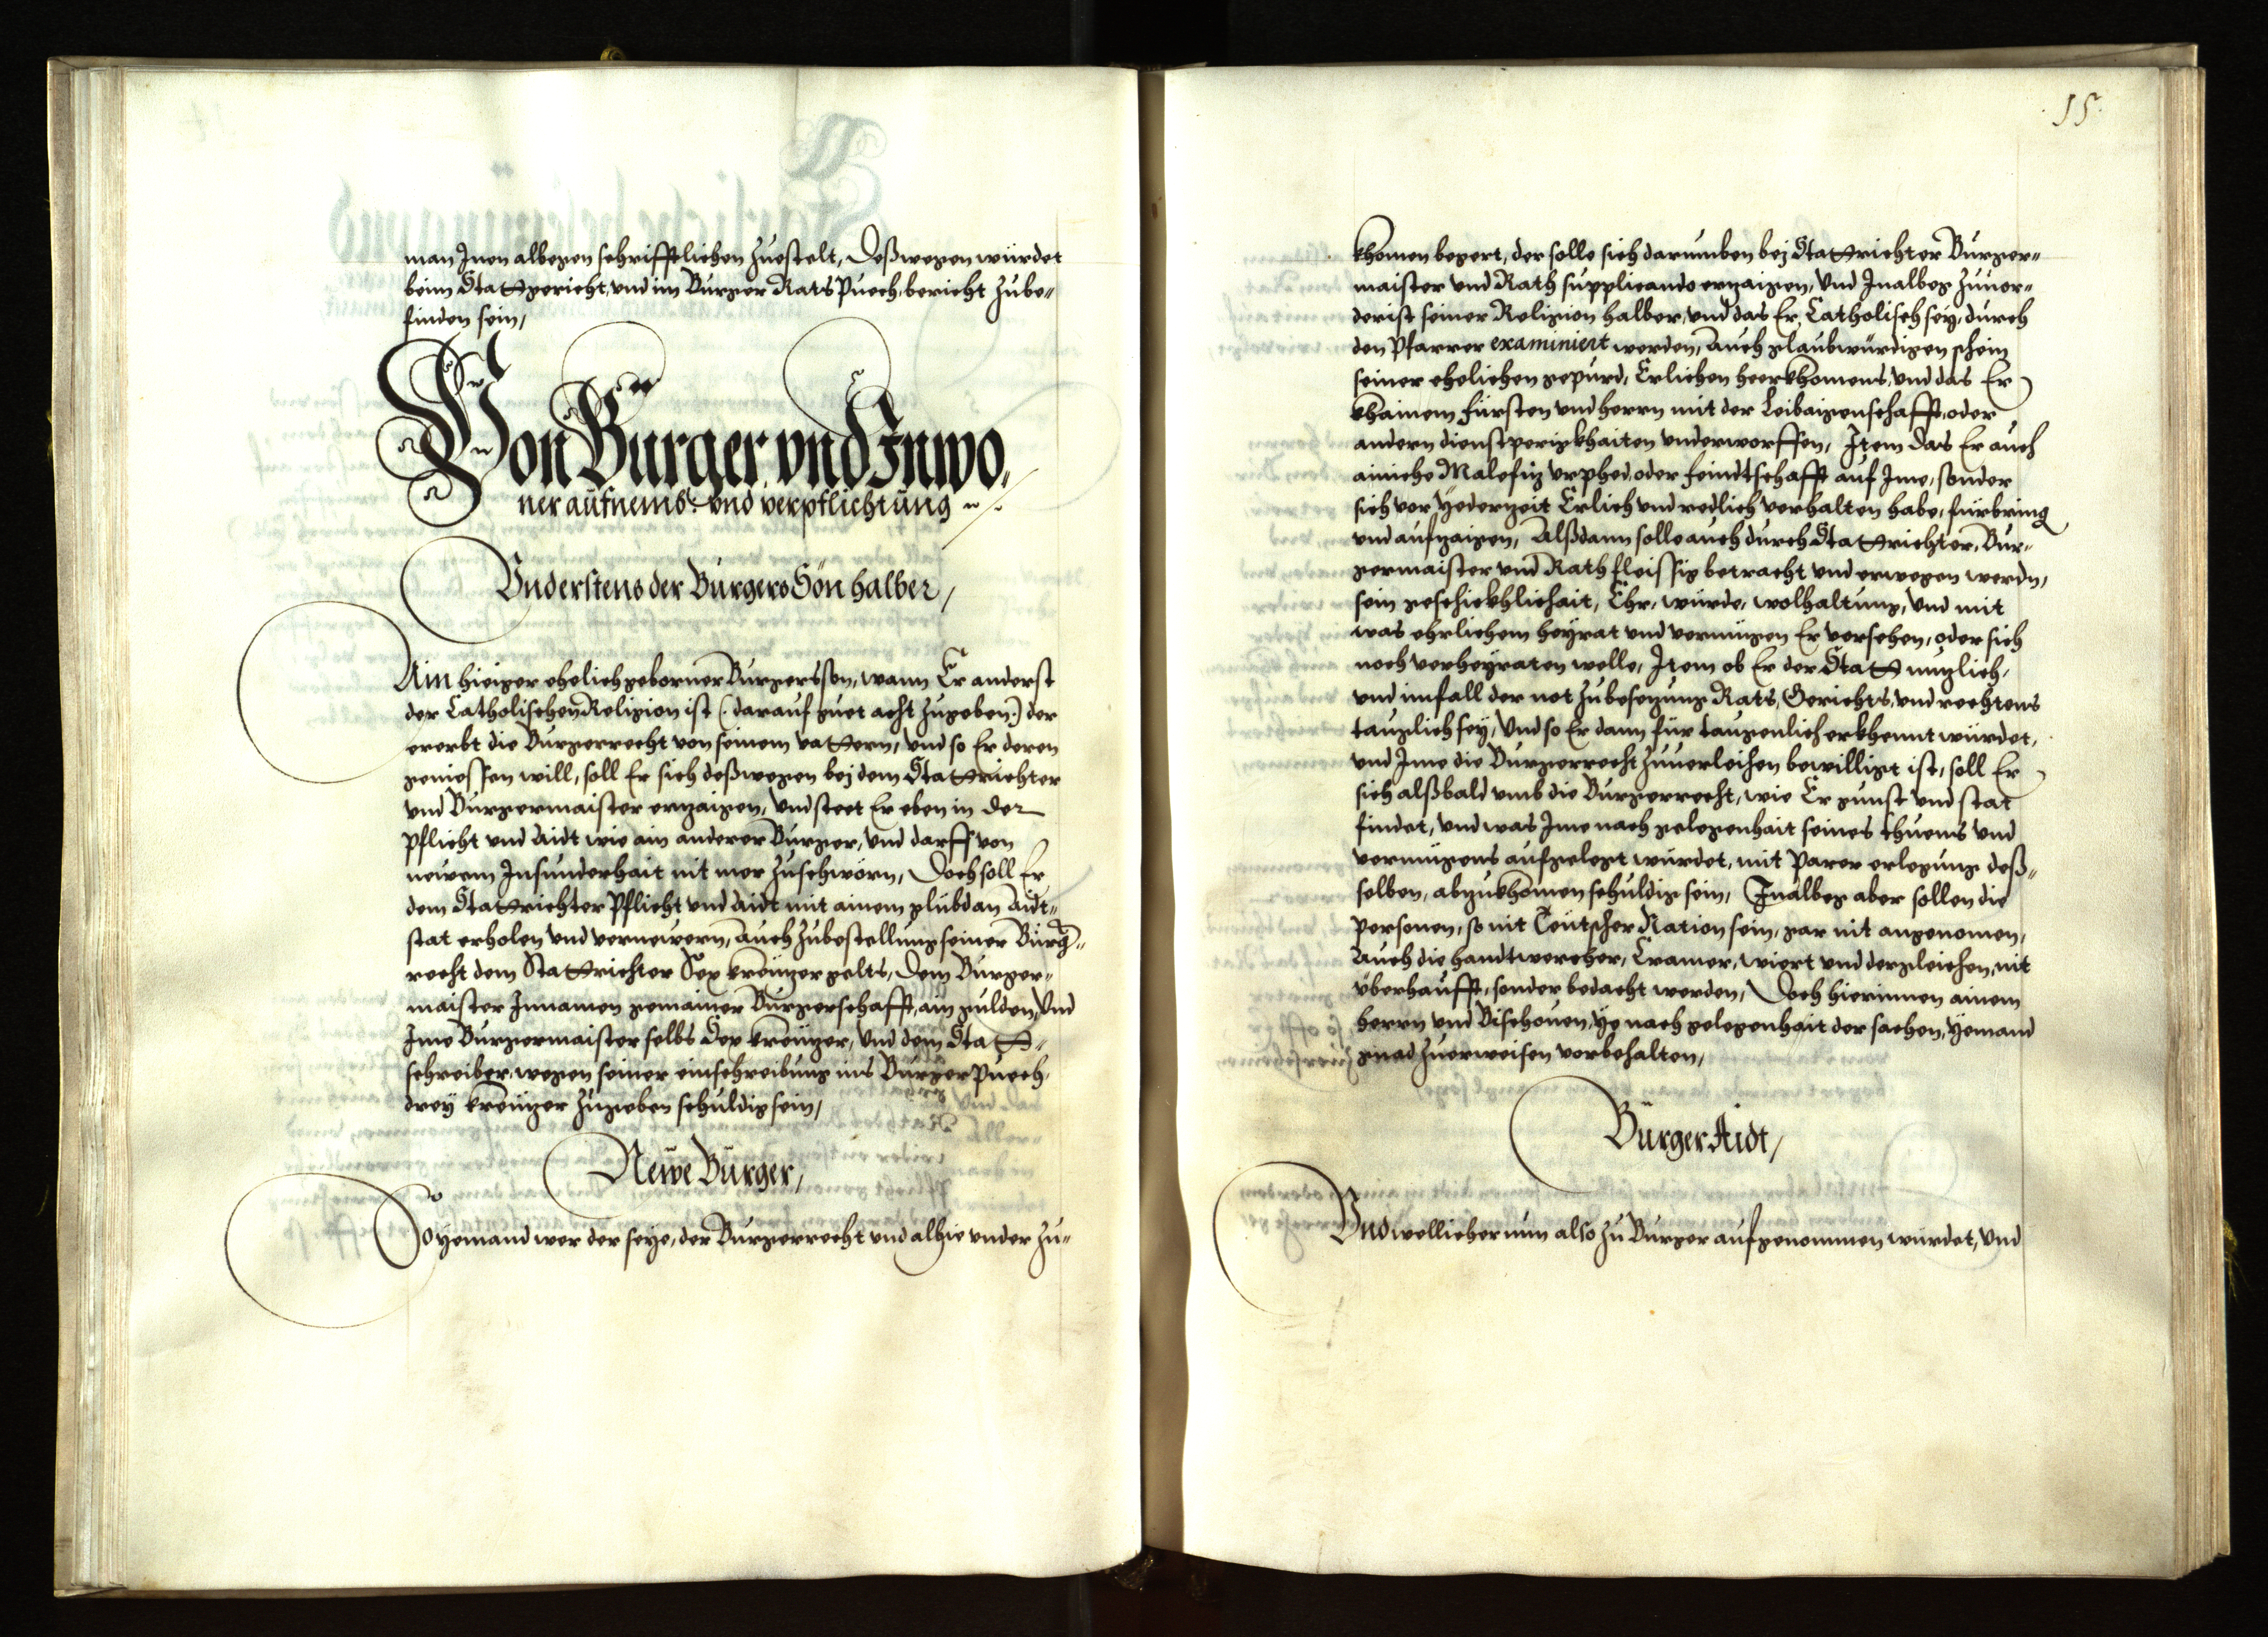 man Inen albegen schrifftlichen zuestelt, Deßwegen würdet
beim Stattgericht, und im Burger Rats Puech, bericht zube-
finden sein,
Von Burger, und Inwo,
ner aufnemb: und verpflichtung
Und erstens der Burgers Sön halber,
Ain hieiger ehelich geborner Burgerssßon, wann Er anderst
der Catholischen Religion ist (: darauf guet acht zugeben:) der
ererbt die Burgerrecht von seinem vattern, Und so Er deren
geniessen will, soll Er sich deßwegen bej dem Stattrichter
und Burgermaister erzaigen, Und steet Er eben in der
Pflicht und Aidt wie ain anderer Burger, Und darff von
newem Insunderhait nit mer zuschwörn, Doch soll Er
dem Stattrichter Pflicht und Aidt mit ainem glübd an Aidt-
stat erholen und vernewern, Auch zubestellung seiner Burg-
recht dem Stattrichter Sex kreuzer gelts, Dem Burger-
maister Innamen gemainer Burgerschafft, ain gulden, Und
Ime Burgermaister selbs Sex kreuzer, Und dem Statt-
schreiber, wegen seiner einschreibung ins Burger Puech,
drey kreuzer zugeben schuldig sein,
Newe Burger,
So yemand wer der seye, der Burgerrecht und alhie under zu-
15.
khomen begert, der solle sich darumben bej Stattrichter Burger-
maister und Rath supplicando erzaigen, Und Inalbeg zuuor-
derist seiner Religion halber, und das Er, Catholisch sey, durch
den Pfarrer examiniert werden, Auch glaubwürdigen schein
seiner ehelichen gepurd, Erlichen heerkhomens, und das Er
khainem Fürsten und herrn mit der Leibaigenschafft, oder
andern dienstperigkhaiten underworffen, Item das Er auch
ainiche Malefiz urphed, oder feindtschafft auf Ime, sonder
sich vor yederzeit Erlich und redlich verhalten habe, fürbring
und aufzaigen, Alßdann solle auch durch Stattrichter, Bur-
germaister und Rath fleissig betracht und erwegen werdn,
sein geschickhlichait, Ehr, würde, wolhaltung, Und mit
was ehrlichem heyrat und vermügen Er versehen, oder sich
noch verheyraten welle, Item ob Er der Statt nuzlich,
und imfall der not zubesezung Rats, Gerichts, und rechtens
tauglich sey, Und so Er dann für taugenlich erkhennt würdet,
und Ime die Burgerrecht zuuerleihen bewilligt ist, soll Er
sich alßbald umb die Burgerrecht, wie Er gunst und stat
findet, Und was Ime nach gelegenhait seines thuens und
vermügens aufgelegt würdet, mit Parer erlegung deß-
selben, abzukhomen schuldig sein, Inalbeg aber sollen die
Personen, so nit Teutscher Nation sein, gar nit angenomen,
Auch die handtwercher, Cramer, wiert und dergleichen, nit
überhaufft, sonder bedacht werden, Doch hierinnen ainem
herrn und Bischouen, ye nach gelegenhait der sachen, yemand
gnad zuerweisen vorbehalten,
Burger Aidt,
Und wellicher nun also zu Burger aufgenommen würdet, Und